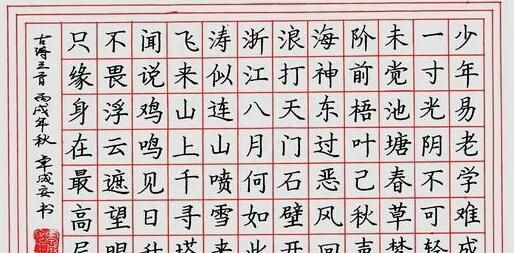 少年易老学难成
一寸光阴不可轻
未觉池塘春草梦
阶前梧叶已秋声
海神东过恶风回
浪打天门石壁开
浙江八月何如此
涛似连山喷雪来
飞来山上千寻塔
闻说鸡鸣见日升
不畏浮云遮望眼
只缘身在最高层
古诗三首 丙戌年秋 书